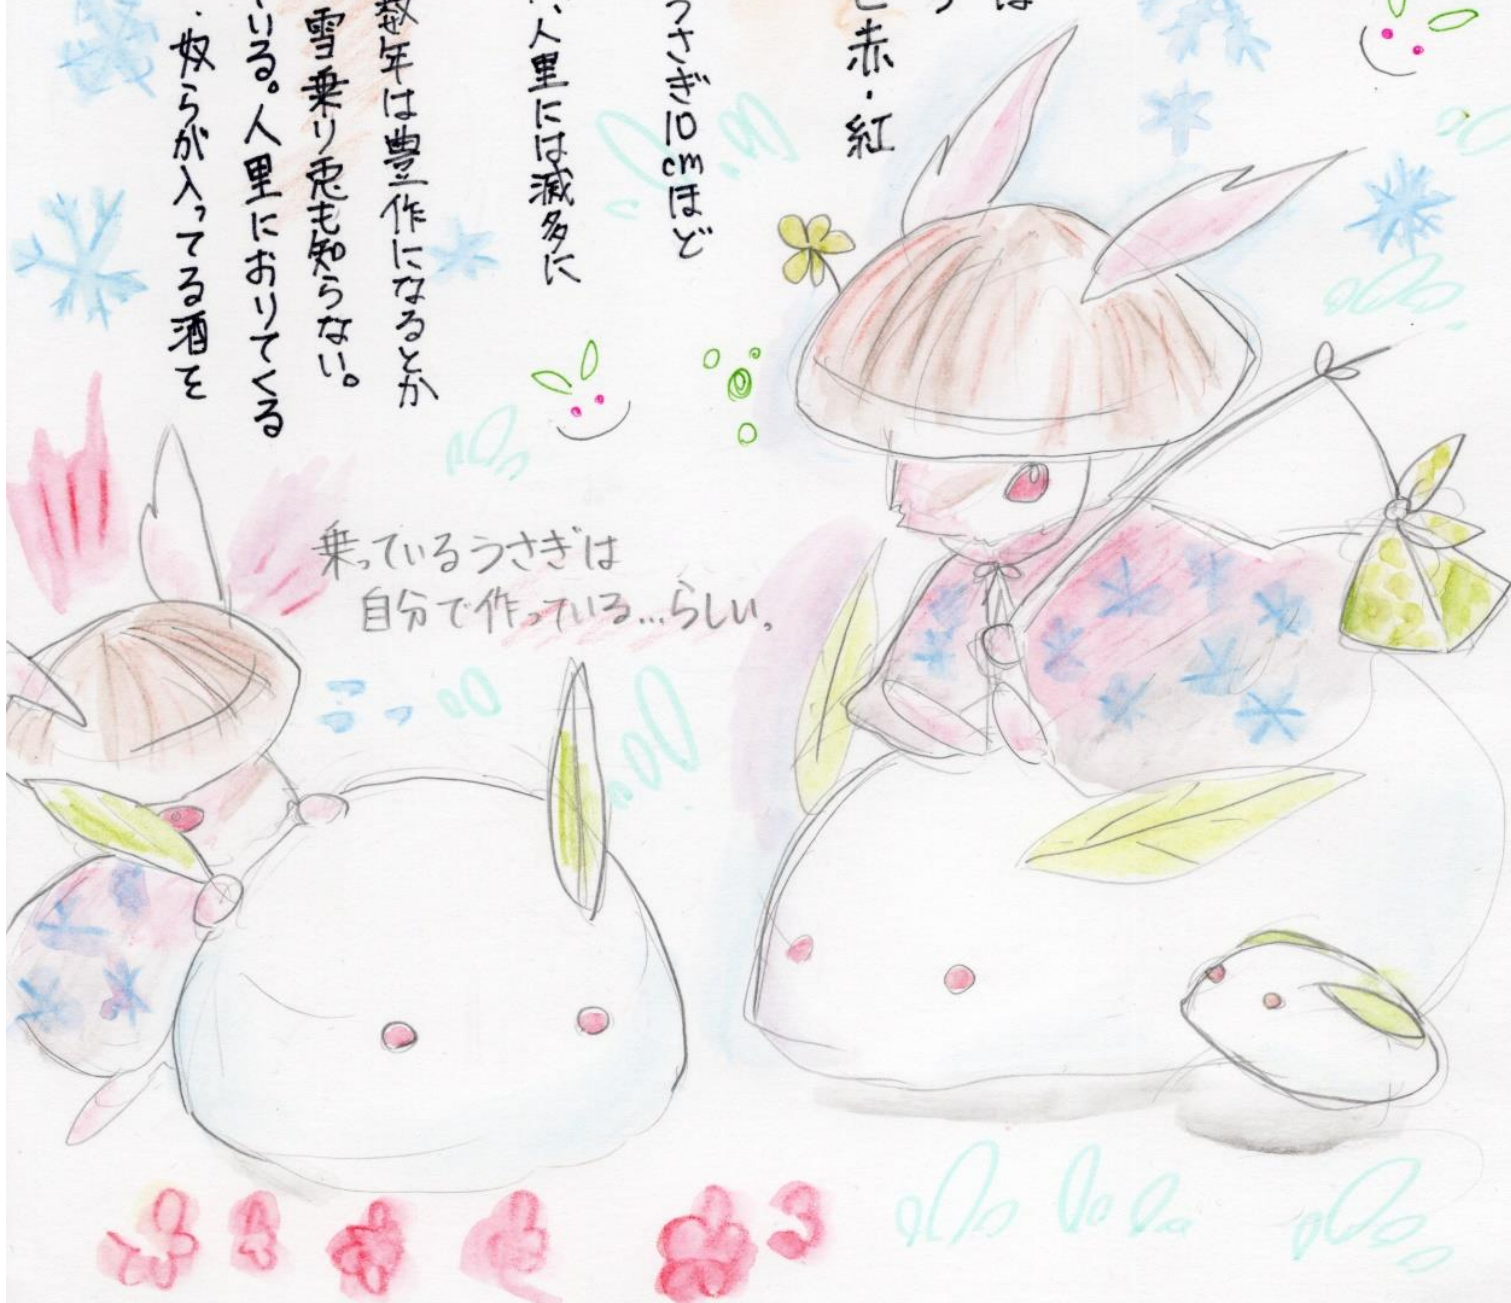 は
と赤・紅
うさぎ10cmほど
人里には滅多に
数年は豊作になるとか
雪乗り兎も知らない。
いる。人里におりてくる
奴らが入ってる酒を
乗っているうさぎは
自分で作っている…らしい。